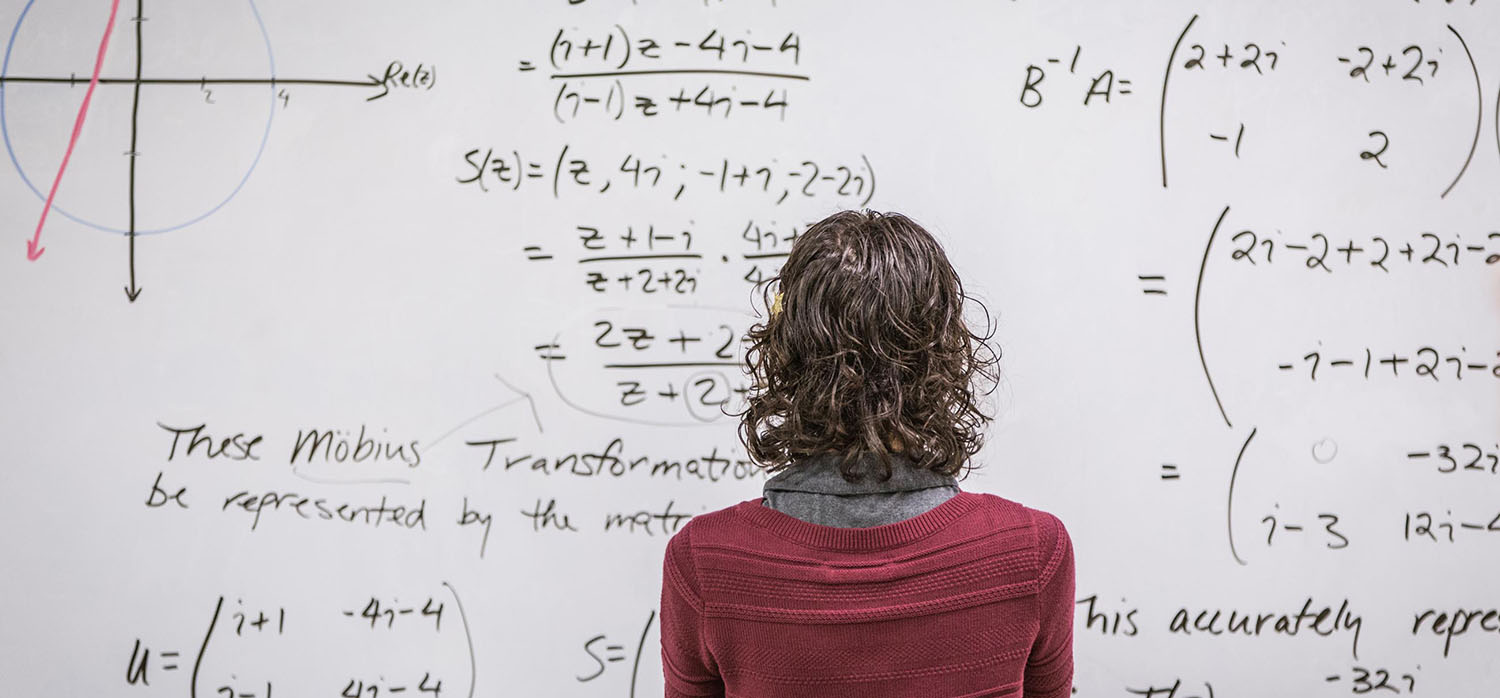 Re(z)
2 4
= (i+1)z-4i-4
(i-1)z+4i-4
S(z)=(z, 4i; -1+i, -2-2i)
= z+1-i · 4i+
z+2+2i 4
= 2z+2
z+2+
These Möbius Transformation
be represented by the matri
U= ( i+1 -4i-4 )
i-1 4i-4
S= (
B⁻¹A= ( 2+2i -2+2i )
-1 2
= ( 2i-2+2+2i-2
-i-1+2i-2
= ( 0 -32i
i-3 12i-4
This accurately repre
-32i